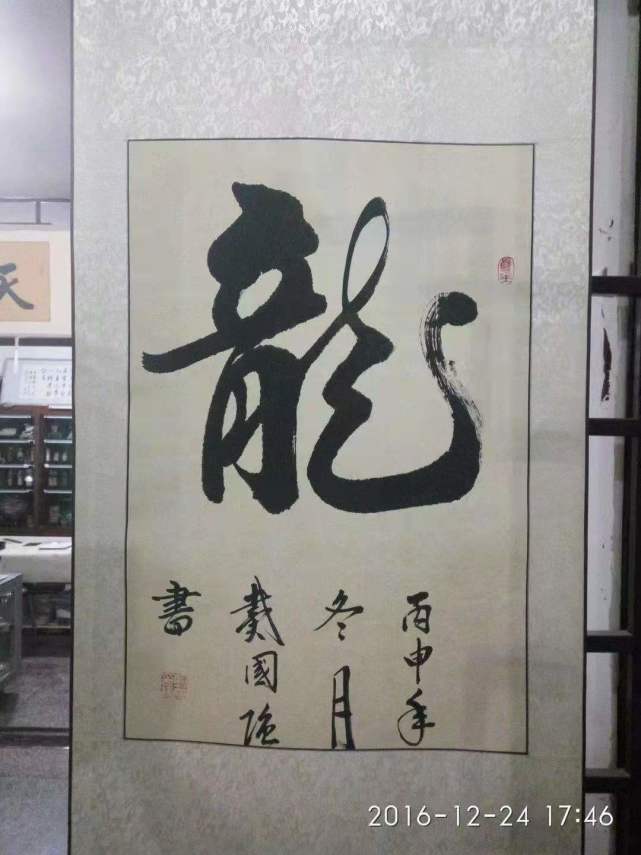 龍
丙申年
冬月
戴國強
書
天
2016-12-24 17:46